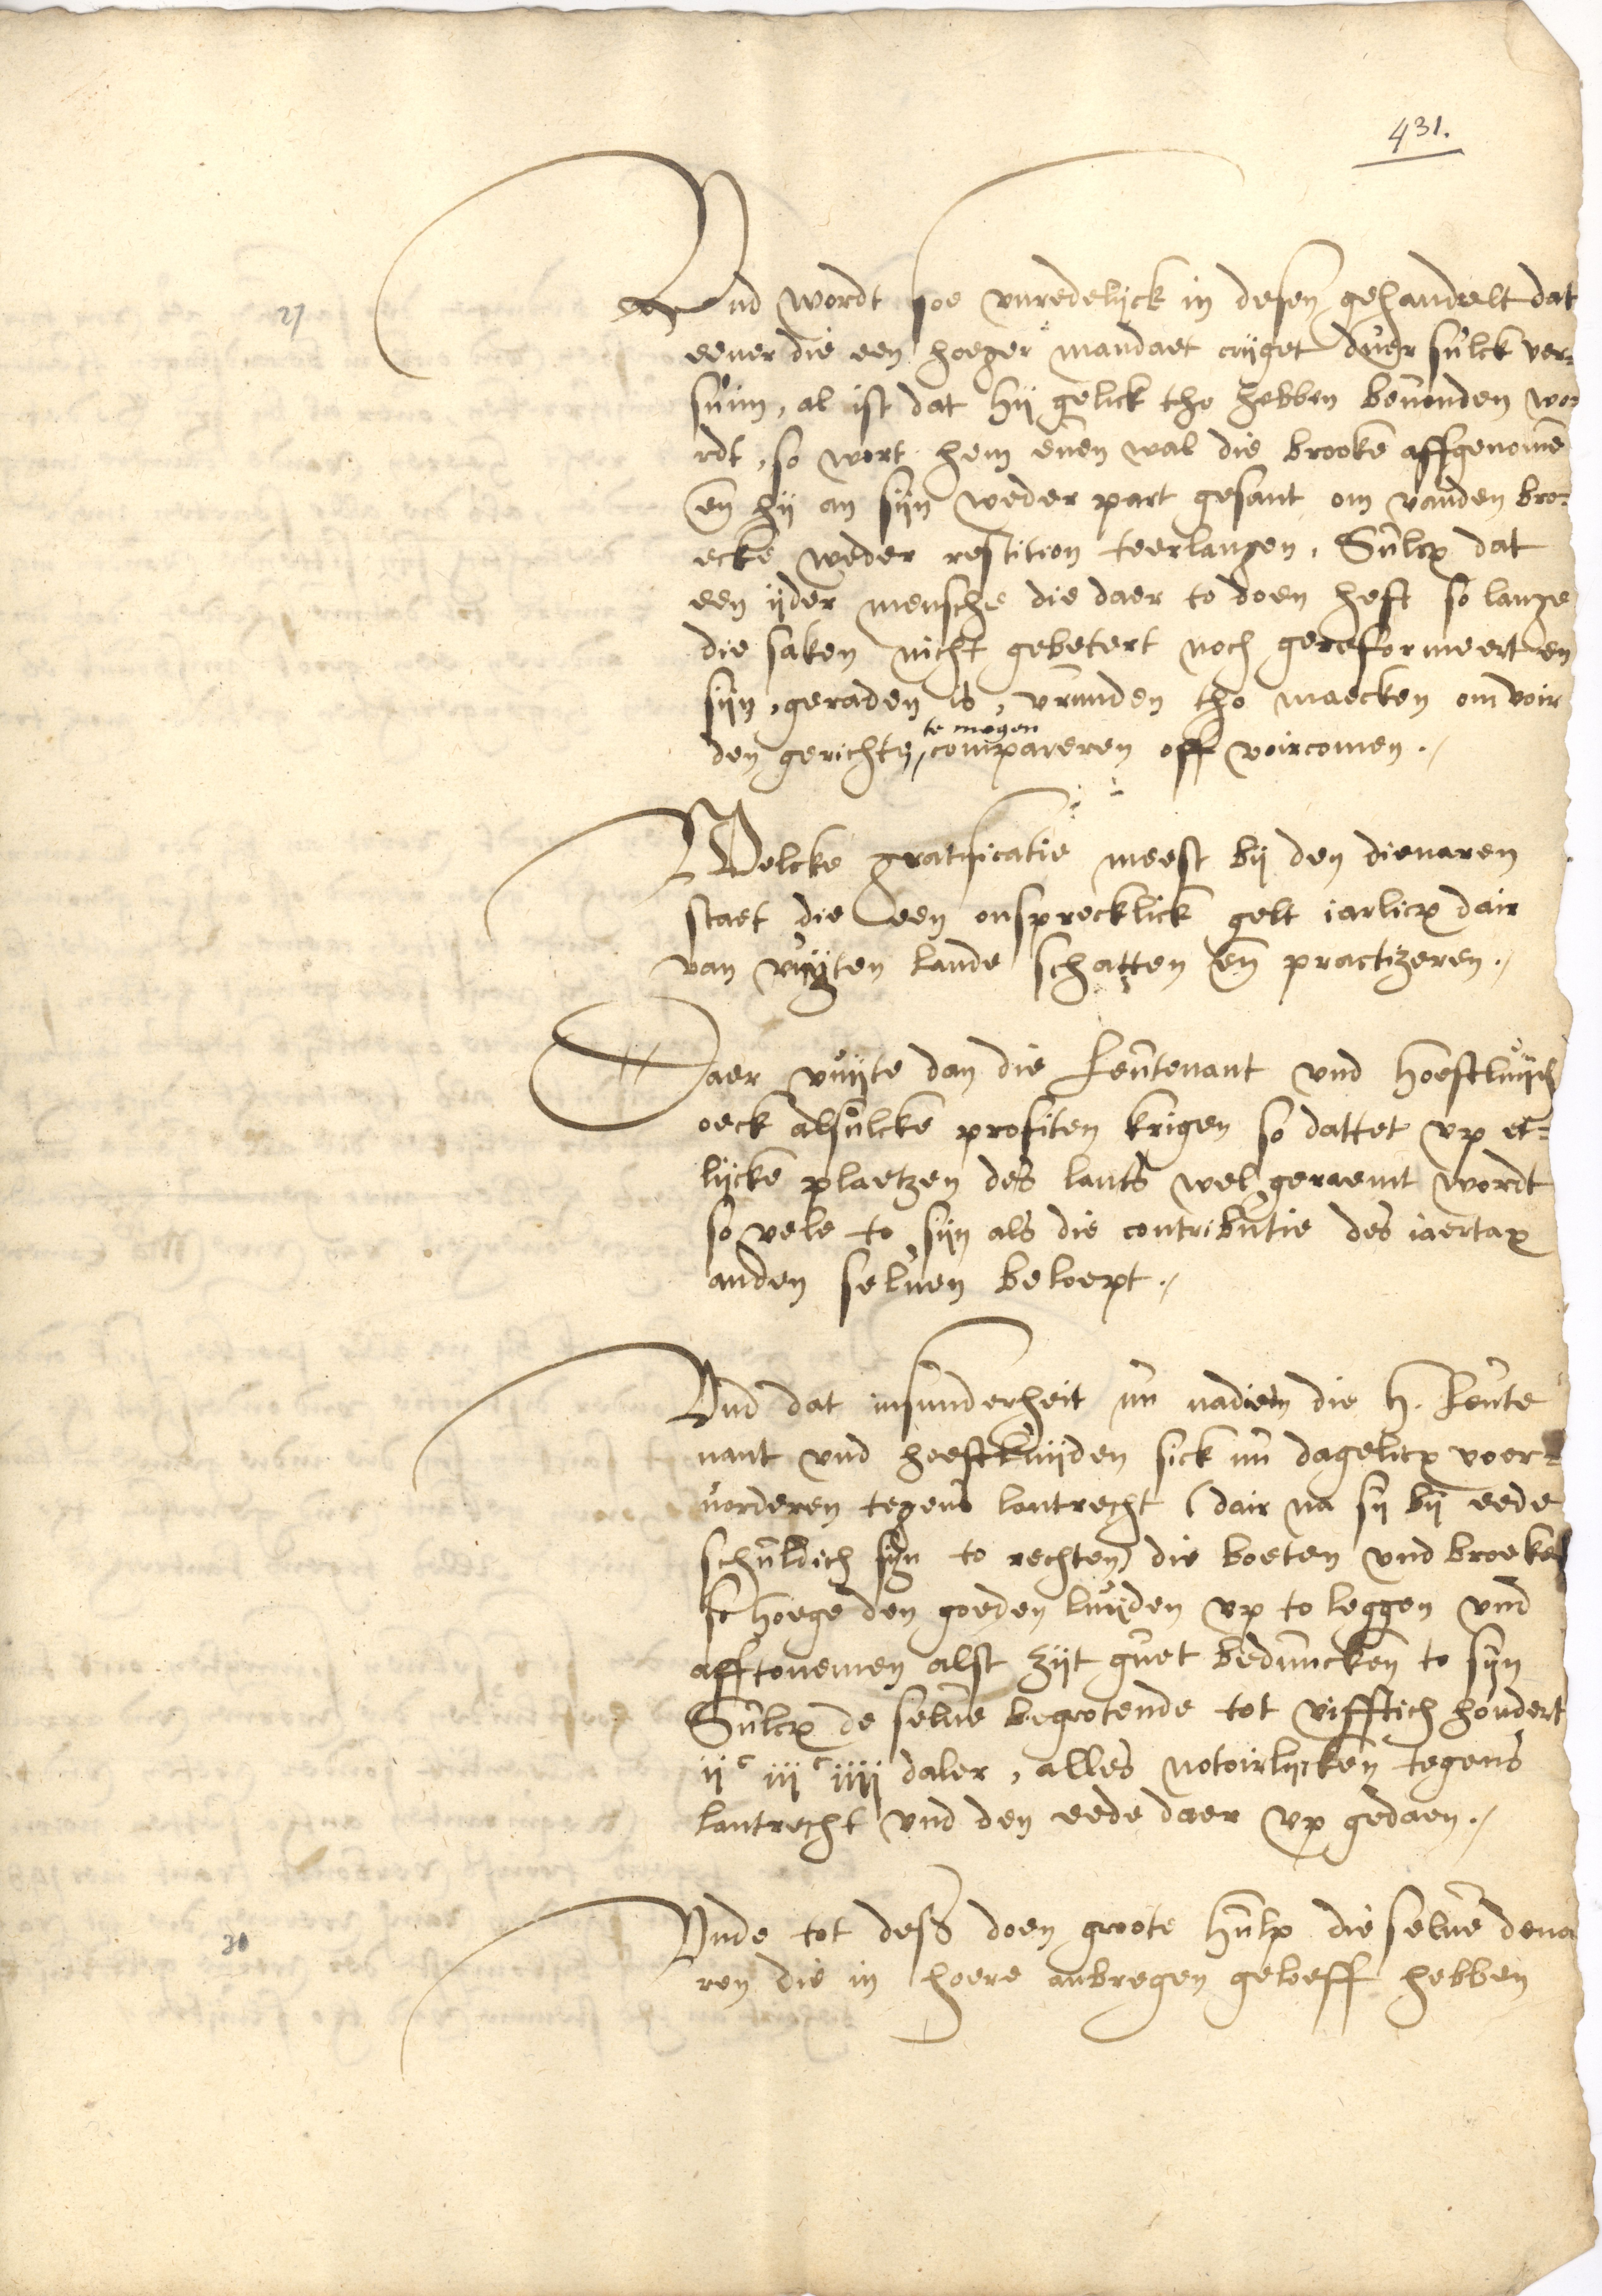 431.
Vnd wordt soe vnredelijck in desen gehandelt dat
27
eener die een hoeger mandaet crijget duer sulck ver-
suim, al ist dat hij gelick tho hebben beuonden wor
rdt, so wort hem euen wal die brooke affgenome
en hij an sijn weder part gesant om vanden bro-
ecke weder restition teerlangen, Sulcx dat
een ijder mensche die daer to doen heft so lange
die saken nicht gebetert noch gereformeert en
sijn, geraden is, vrunden tho maecken om voir
te mogen
den gerichte, compareren off voircomen.
Welcke gratificatie meest bij den dienaren
staet die een onsprecklick gelt iarlicx dair
van vuijten lande schatten en practizeren.
Daer vuijte dan die Leutenant vnd hoeftluijd
oeck alsulcke profiten krigen so dattet vp et-
lijcke plaetzen des lants wel geraemt wordt
so vele to sijn als die contributie des iaertax
anden seluen beloept.
Vnd dat insunderheit nu nadiem die H. Leute
nant vnd hoeftluijden sick nu dagelicx voer-
uorderen tegens lantrecht (dair na sij bij eede
schuldich sijn to rechten) die boeten vnd broeken
so hoege den goeden luijden vp to leggen vnd
afftonemen alst zijt guet beduncken to sijn
Sulcx de selue begrotende tot vifftich hondert
ij c iij c iiij daler, alles notoirlijcken tegens
lantrecht vnd den eede daer vp gedaen.
Vnde tot dess doen groote hulp die selue dena
30
ren die in hoere anbregen geloeff hebben